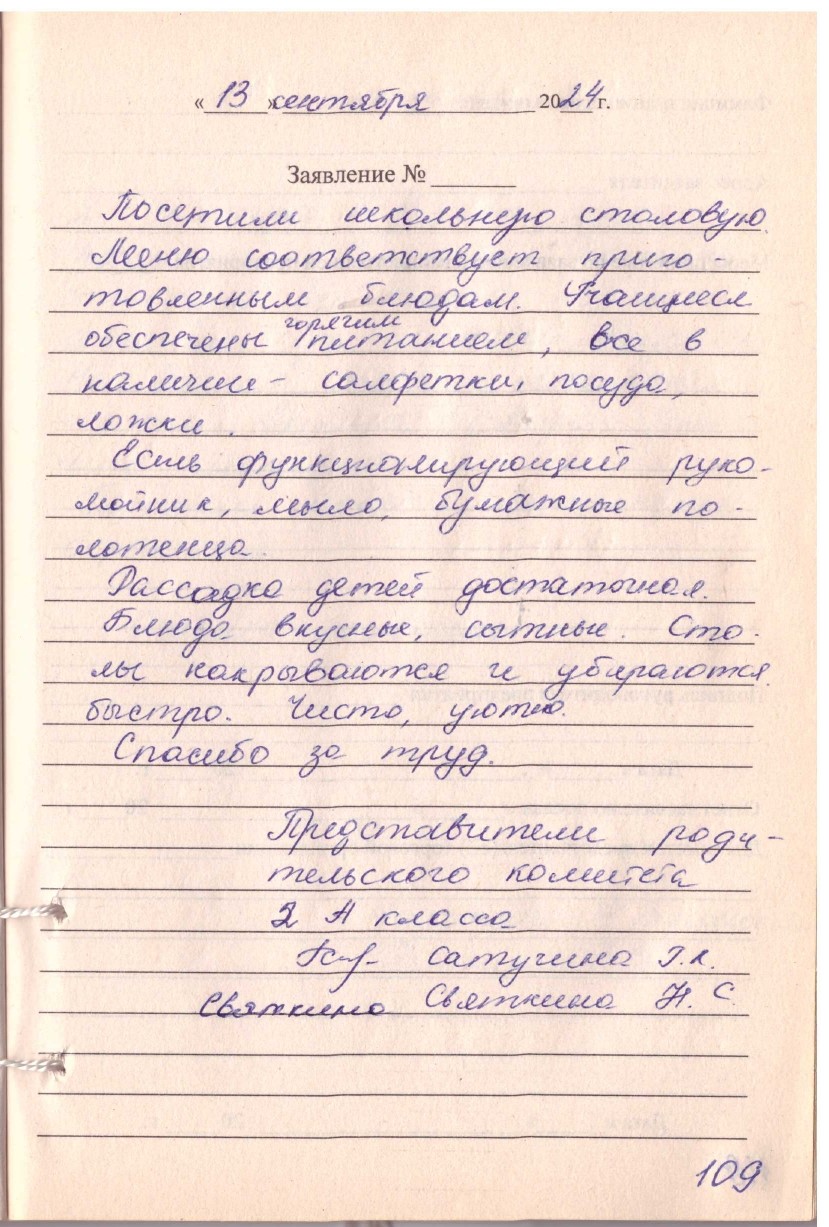 «13» сентября 2024 г.
Заявление №
Посетили школьную столовую.
Меню соответствует приго-
товленным блюдам. Учащиеся
обеспечены горячим питанием, все в
наличии - салфетки, посуда,
ложки.
Есть функционирующий руко-
мойник, мыло, бумажные по-
лотенца.
Рассадка детей достаточная.
Блюда вкусные, сытные. Сто-
лы накрываются и убираются
быстро. Чисто, уютно.
Спасибо за труд.
Представители роди-
тельского комитета
2 А класса
Сатучина Г.К.
Святкина Святкина Н.С.
109